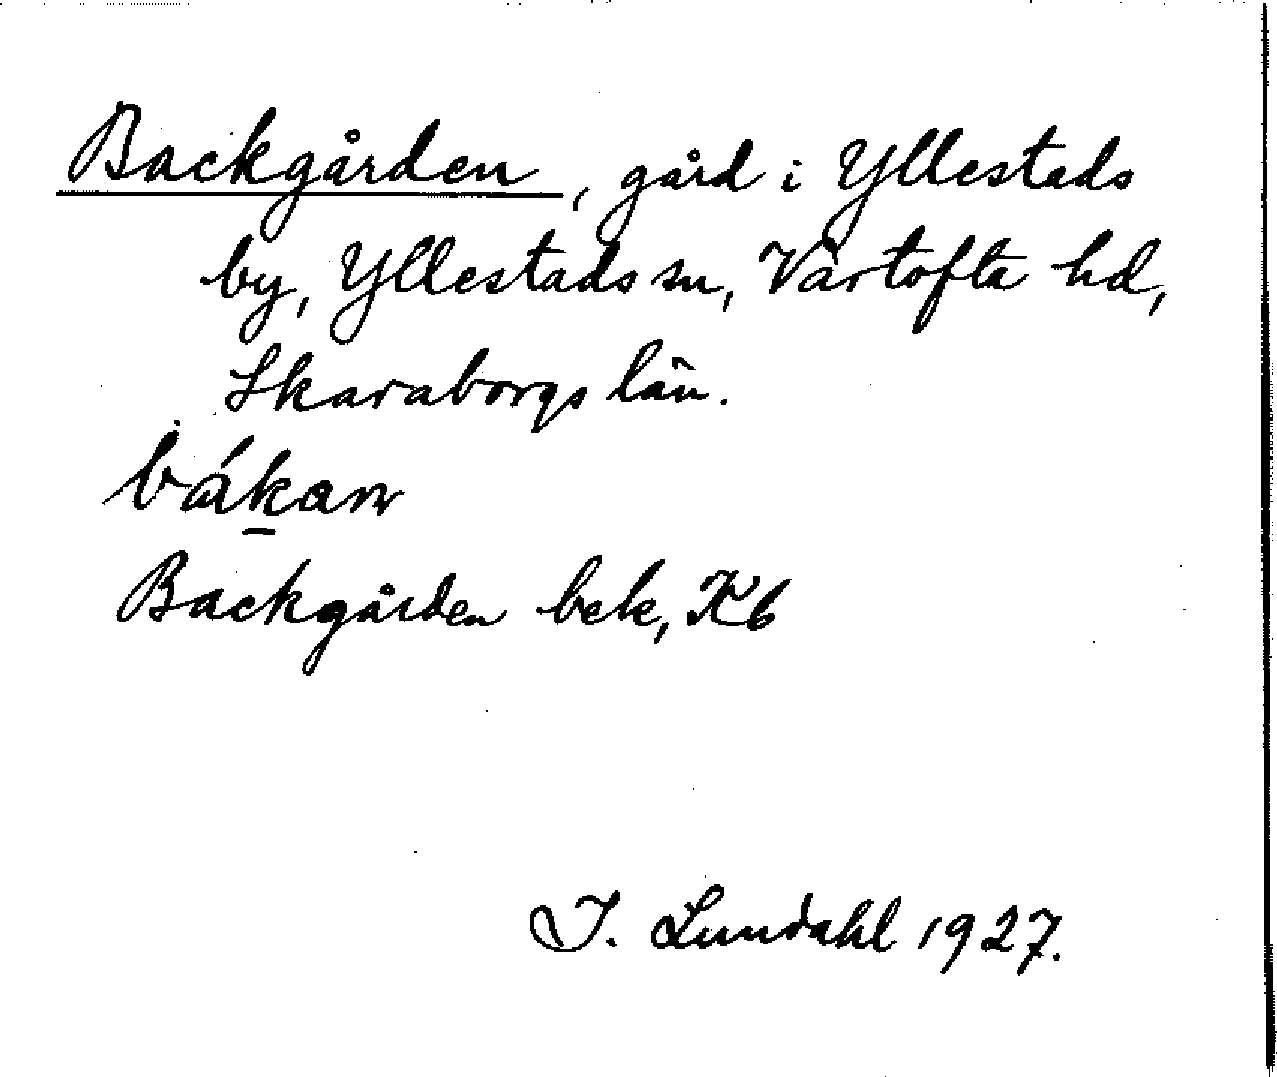 Backgården, gård i Yllestads
by, Yllestads sn, Vartofta hd,
Skaraborgs län.
bákan
Backgården bek, Kb
I. Lundahl 1927.